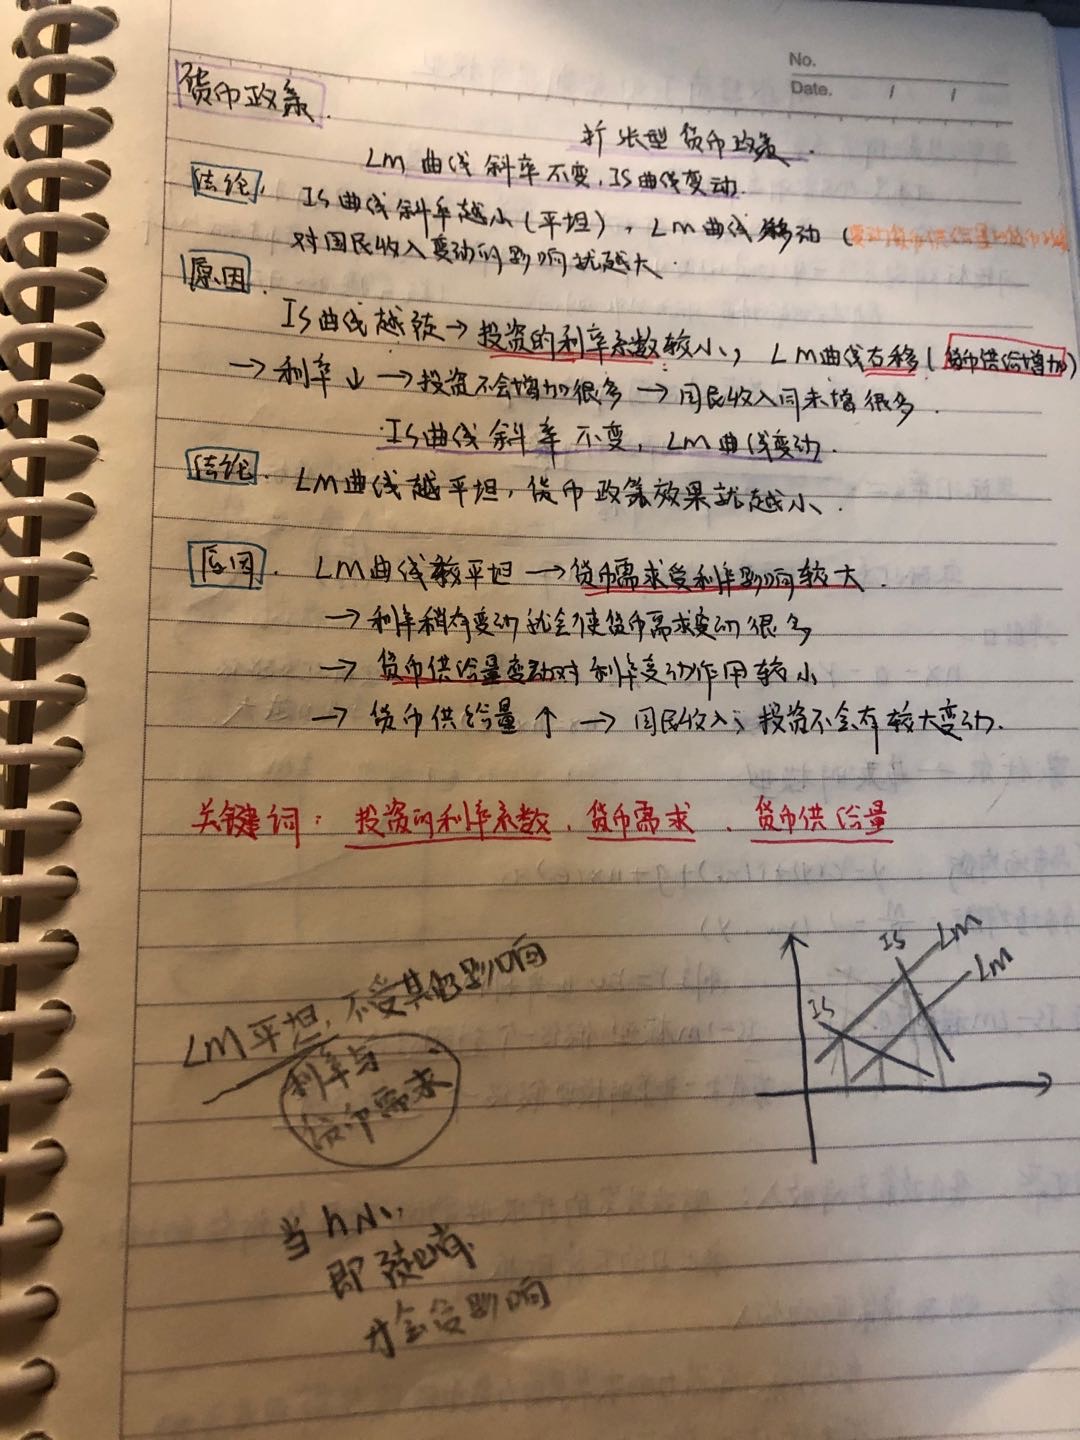 No.
Date. / /
货币政策.
扩张型货币政策.
LM曲线斜率不变,IS曲线变动.
结论,
IS曲线斜率越小(平坦),LM曲线移动(变动货币供给量的货币政策
对国民收入变动的影响就越大.
原因.
IS曲线越陡→投资的利率系数较小,LM曲线右移(货币供给增加)
→利率↓→投资不会增加很多→国民收入同未增很多.
IS曲线斜率不变,LM曲线变动.
结论. LM曲线越平坦,货币政策效果就越小.
原因. LM曲线较平坦→货币需求受利率影响较大.
→利率稍有变动就会使货币需求变动很多
→货币供给量变动对利率变动作用较小
→货币供给量↑→国民收入;投资不会有较大变动.
关键词:投资的利率系数、货币需求、货币供给量
IS LM
LM
IS
LM平坦,不受其他影响
利率与
货币需求
当h小,
即陡峭
才会受影响